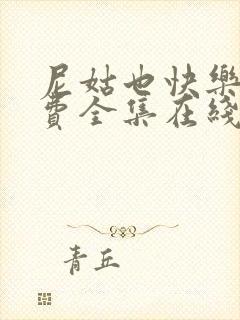 尼姑也快樂
費全集在綫
青丘